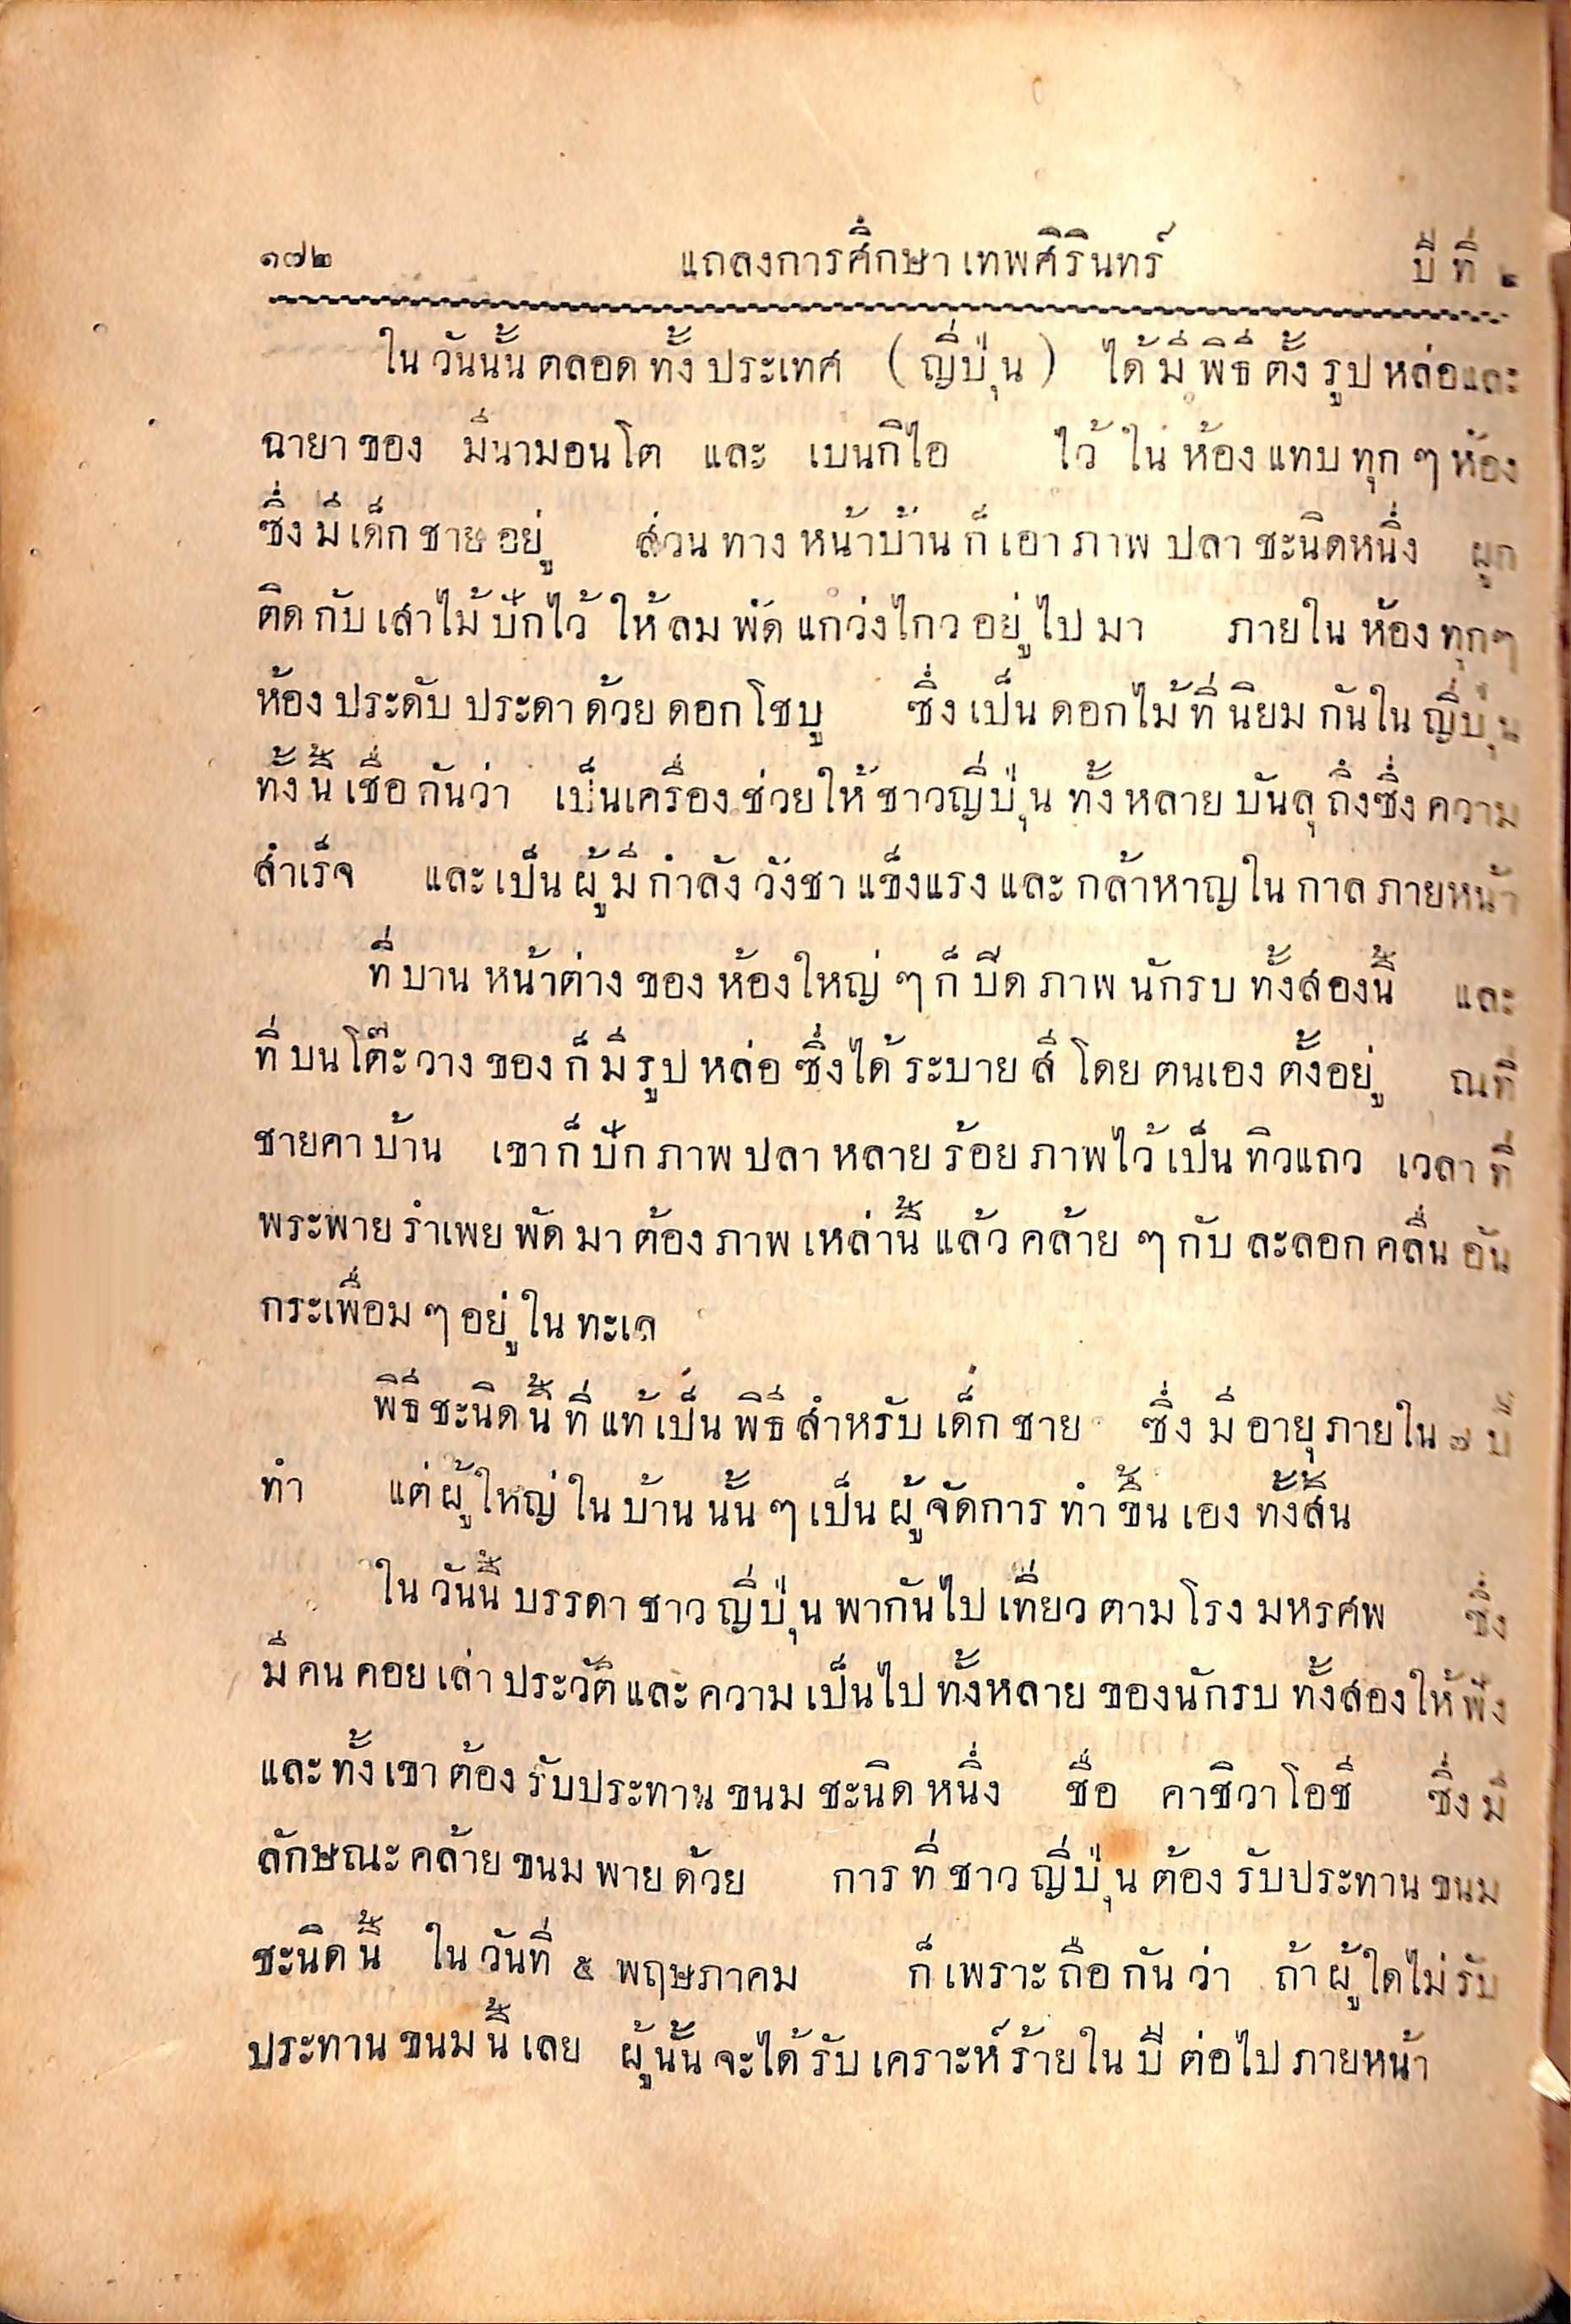 ๑๗๒ แถลงการศึกษาเทพศิรินทร์ ปีที่ ๒
ในวันนั้นตลอดทั้งประเทศ (ญี่ปุ่น) ได้มีพิธีตั้งรูปหล่อและ
ฉายาของ มีนามอนโต และ เบนกีไอ ไว้ ในห้องแทบทุก ๆ ห้อง
ซึ่งมีเด็กชายอยู่ ส่วนทางหน้าบ้านก็เอาภาพปลาชะนิดหนึ่ง ผูก
ติดกับเสาไม้ปักไว้ ให้ลมพัดแกว่งไกวอยู่ไปมา ภายในห้องทุกๆ
ห้องประดับประดาด้วยดอกโชบู ซึ่งเป็นดอกไม้ที่นิยมกันในญี่ปุ่น
ทั้งนี้เชื่อกันว่า เป็นเครื่องช่วยให้ชาวญี่ปุ่นทั้งหลายบันลุถึงซึ่งความ
สำเร็จ และเป็นผู้มีกำลังวังชาแข็งแรงและกล้าหาญในกาลภายหน้า
ที่บานหน้าต่างของห้องใหญ่ ๆ ก็ปิดภาพนักรบทั้งสองนี้ และ
ที่บนโต๊ะวางของก็มีรูปหล่อซึ่งได้ระบายสีโดยตนเองตั้งอยู่ ณที่
ชายคาบ้าน เขาก็ปักภาพปลาหลายร้อยภาพไว้เป็นทิวแถว เวลาที่
พระพายรำเพยพัดมาต้องภาพเหล่านี้แล้วคล้าย ๆ กับละลอกคลื่นอัน
กระเพื่อม ๆ อยู่ในทะเล
พิธีชะนิดนี้ที่แท้เป็นพิธีสำหรับเด็กชาย ซึ่งมีอายุภายใน ๗ ปี
ทำ แต่ผู้ใหญ่ในบ้านนั้น ๆ เป็นผู้จัดการทำขึ้นเองทั้งสิ้น
ในวันนี้บรรดาชาวญี่ปุ่นพากันไปเที่ยวตามโรงมหรศพ ซึ่ง
มีคนคอยเล่าประวัติและความเป็นไปทั้งหลายของนักรบทั้งสองให้ฟัง
และทั้งเขาต้องรับประทานขนมชะนิดหนึ่ง ชื่อ คาชิวาโอชี ซึ่งมี
ลักษณะคล้ายขนมพายด้วย การที่ชาวญี่ปุ่นต้องรับประทานขนม
ชะนิดนี้ ในวันที่ ๕ พฤษภาคม ก็เพราะถือกันว่า ถ้าผู้ใดไม่รับ
ประทานขนมนี้เลย ผู้นั้นจะได้รับเคราะห์ร้ายในปีต่อไปภายหน้า